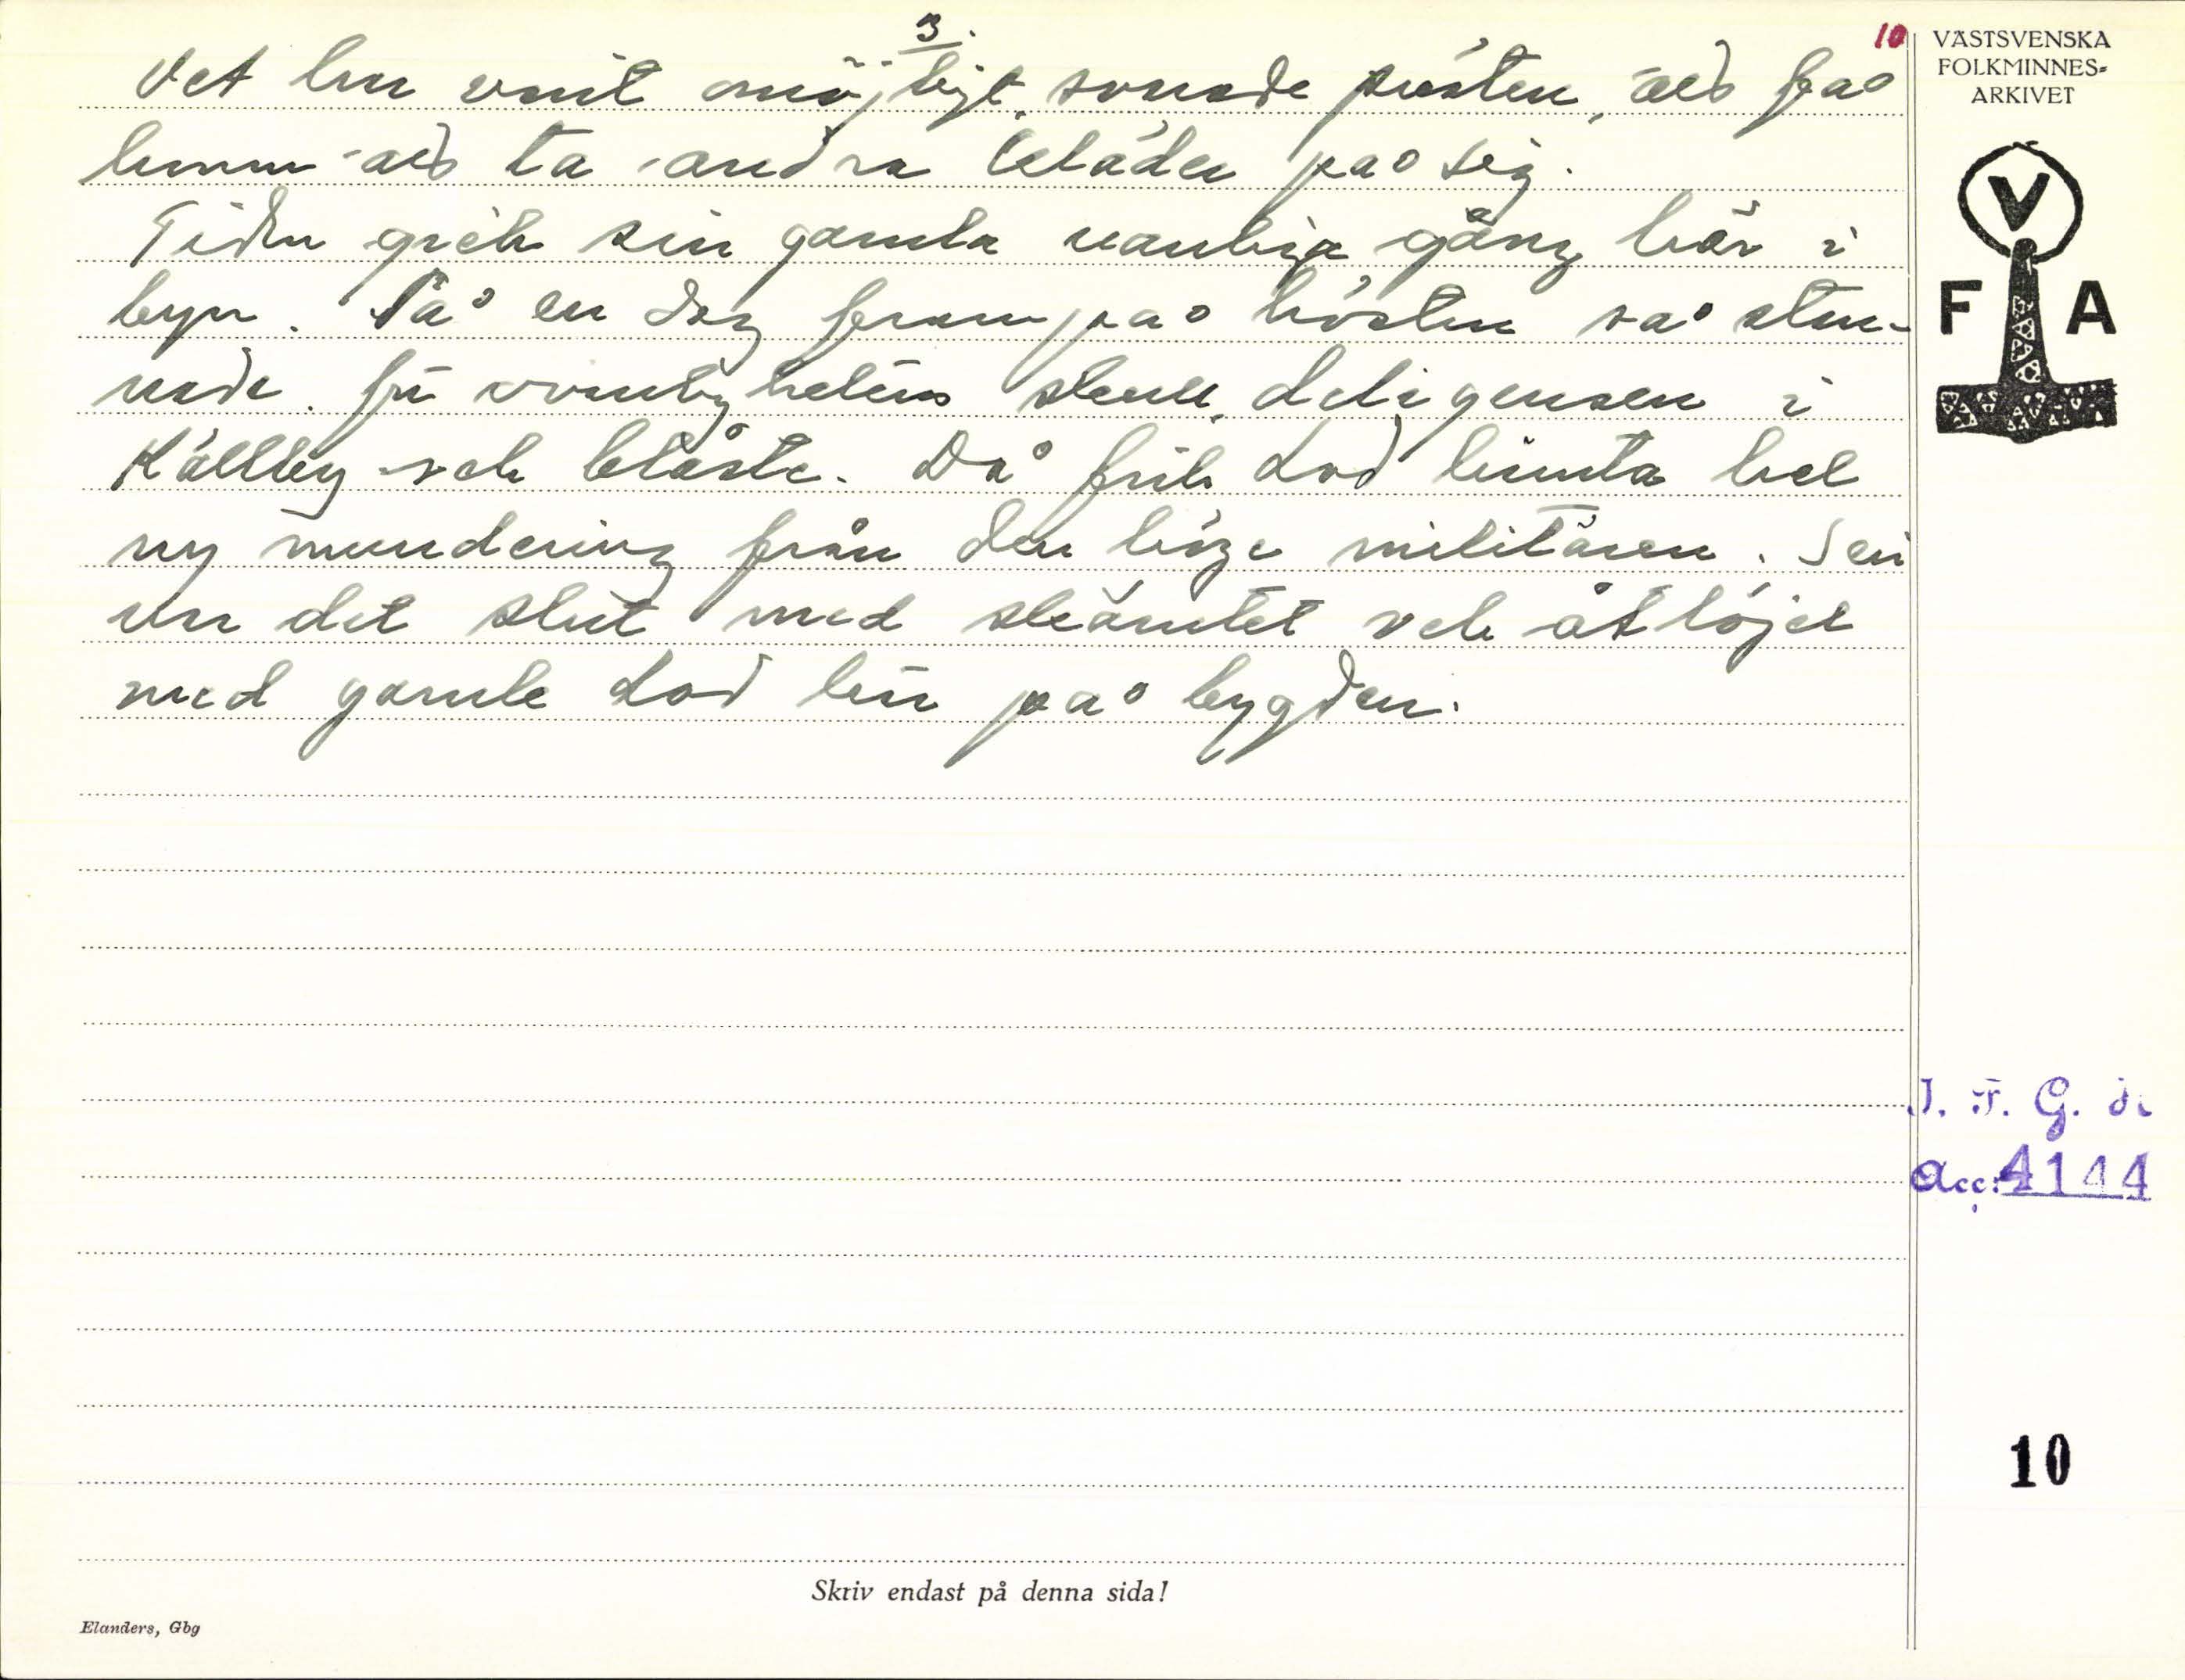 3.
10
Det hn vait omöjligt, svarade prästen, äd få
honom äd ta andra kläder på sig.
Tiden gick sin gamla vanliga gång här i
byn. Så en dag fram på hösten så stan-
nade. fü ovanlighetens skull, deligensen i
Källby och blåste. Då fick Lod hämta hel
ny mundering från den höge militären. Sen
va det slut med skämtet och åtlöjet
med gamle Lod här på bygden.
VÄSTSVENSKA
FOLKMINNES-
ARKIVET
V
F A
I. F. G. s
Acc: 4144
10
Skriv endast på denna sida!
Elanders, Gbg